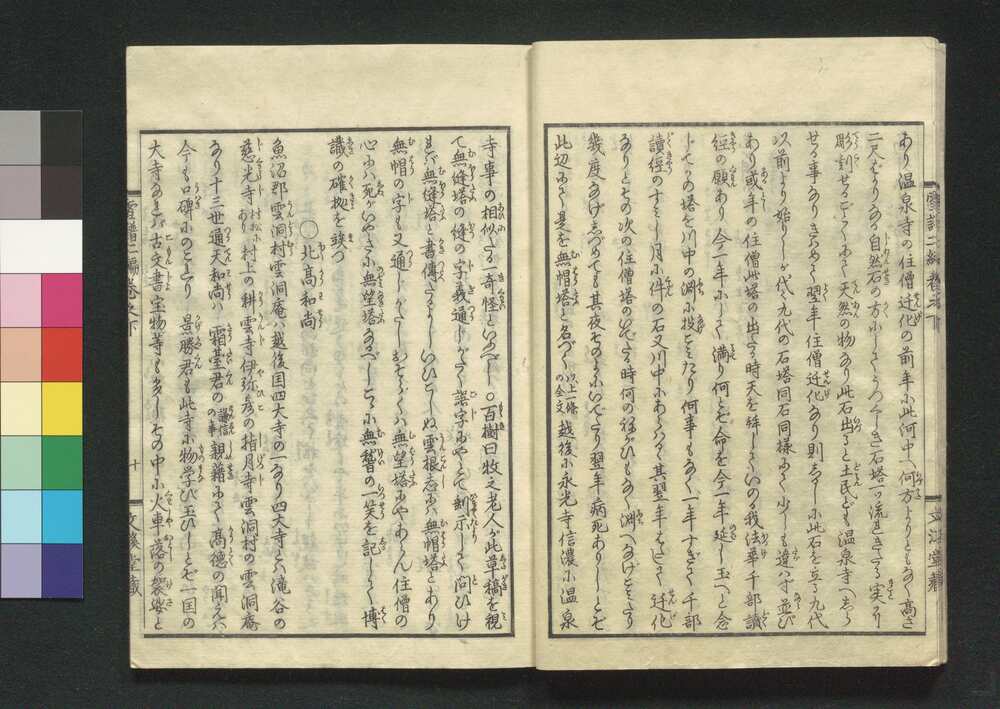 あり温泉寺の住僧迁化の前年小此河中へ何方よりともなく高さ
二尺ばかりなる自然石の方小してうつくしき石塔一ツ流れきたる実に
彫刻せるごとく小て天然の物なり此石出ると土民ども温泉寺へしら
せる事ありきはめて翌年住僧迁化あり則しるし小此石を立る九代
以前より始りしが代々九代の石塔同石同様小て少しも違はず並び
あり或年の住僧此塔の出たる時天を拝していのる我法華千部読
経の願あり今一年小して満り何とぞ命を今一年延し玉へと念
じてかの塔を川中の淵小投こみたり何事もなく一年すぎて千部
読経のすみし月小件の石又川中小あらはる其翌年はたして迁化
なりとぞその次の住僧塔のいでたる時何のねがひもなく淵へなげこみたり
幾度なげしづめても其夜そのまゝ小いでたり翌年病死ありしとぞ
此辺小て是を無帽塔と名づく 以上一條の全文 越後小永光寺信濃小温泉
寺事の相似たる一奇怪といふべし○百樹曰牧之老人が此草稿を視
て無縫塔の縫の字義通じがたく誤字小やとて郵示して問ひけ
れバ無縫塔と書傳たるよしいひこしぬ雲根志には無帽塔とあり
無帽の字も又通じがたしおそらくハ無望塔小やあらん住僧の
心小ハ死がいやさ小無望塔なるべしこゝ小無稽の一笑を記して博
識の確拠を竢つ
○北高和尚
魚沼郡雲洞村雲洞庵ハ越後国四大寺の一なり四大寺とハ滝谷の
慈光寺 村松小あり 村上の耕雲寺伊弥彦の指月寺雲洞村の雲洞庵
なり十三世通天和尚ハ霜臺君の 謙信の事 親藉小て高徳の聞えハ
今も口碑小のこれり 景勝君も此寺小物学び玉ひしとぞ一国の
大寺なれバ古文書宝物等も多しその中小火車落の袈裟と
雪譜二編巻之下
十
文溪堂藏